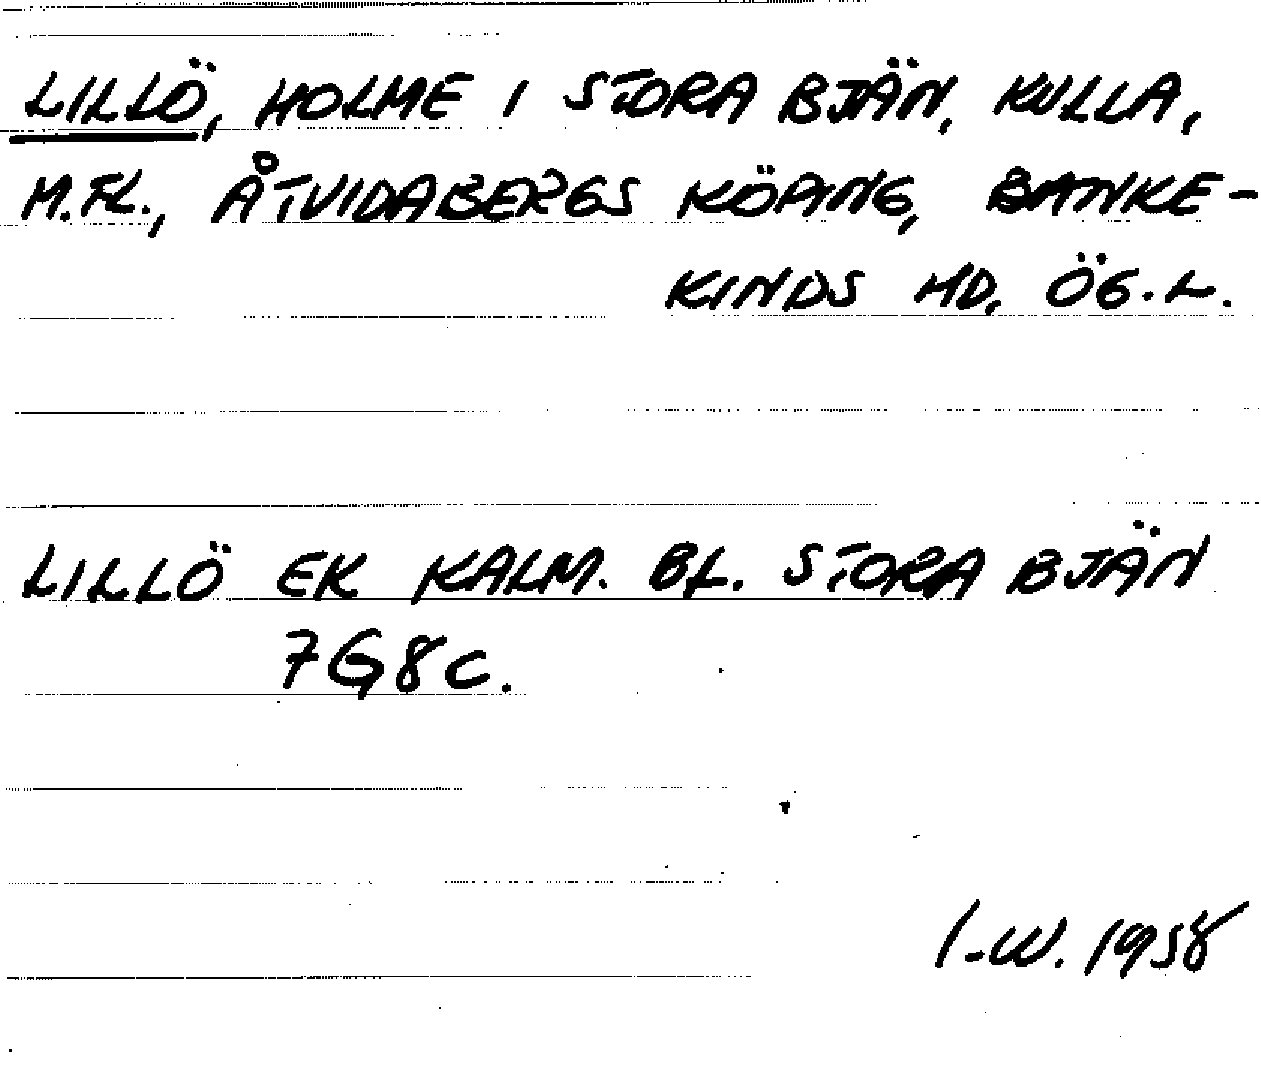 LILLÖ, HOLME I STORA BJÄN, KULLA,
M.FL., ÅTVIDABERGS KÖPING, BANKE-
KINDS HD, ÖG.L.
LILLÖ EK KALM. BL. STORA BJÄN
7G8c.
I-W. 1958